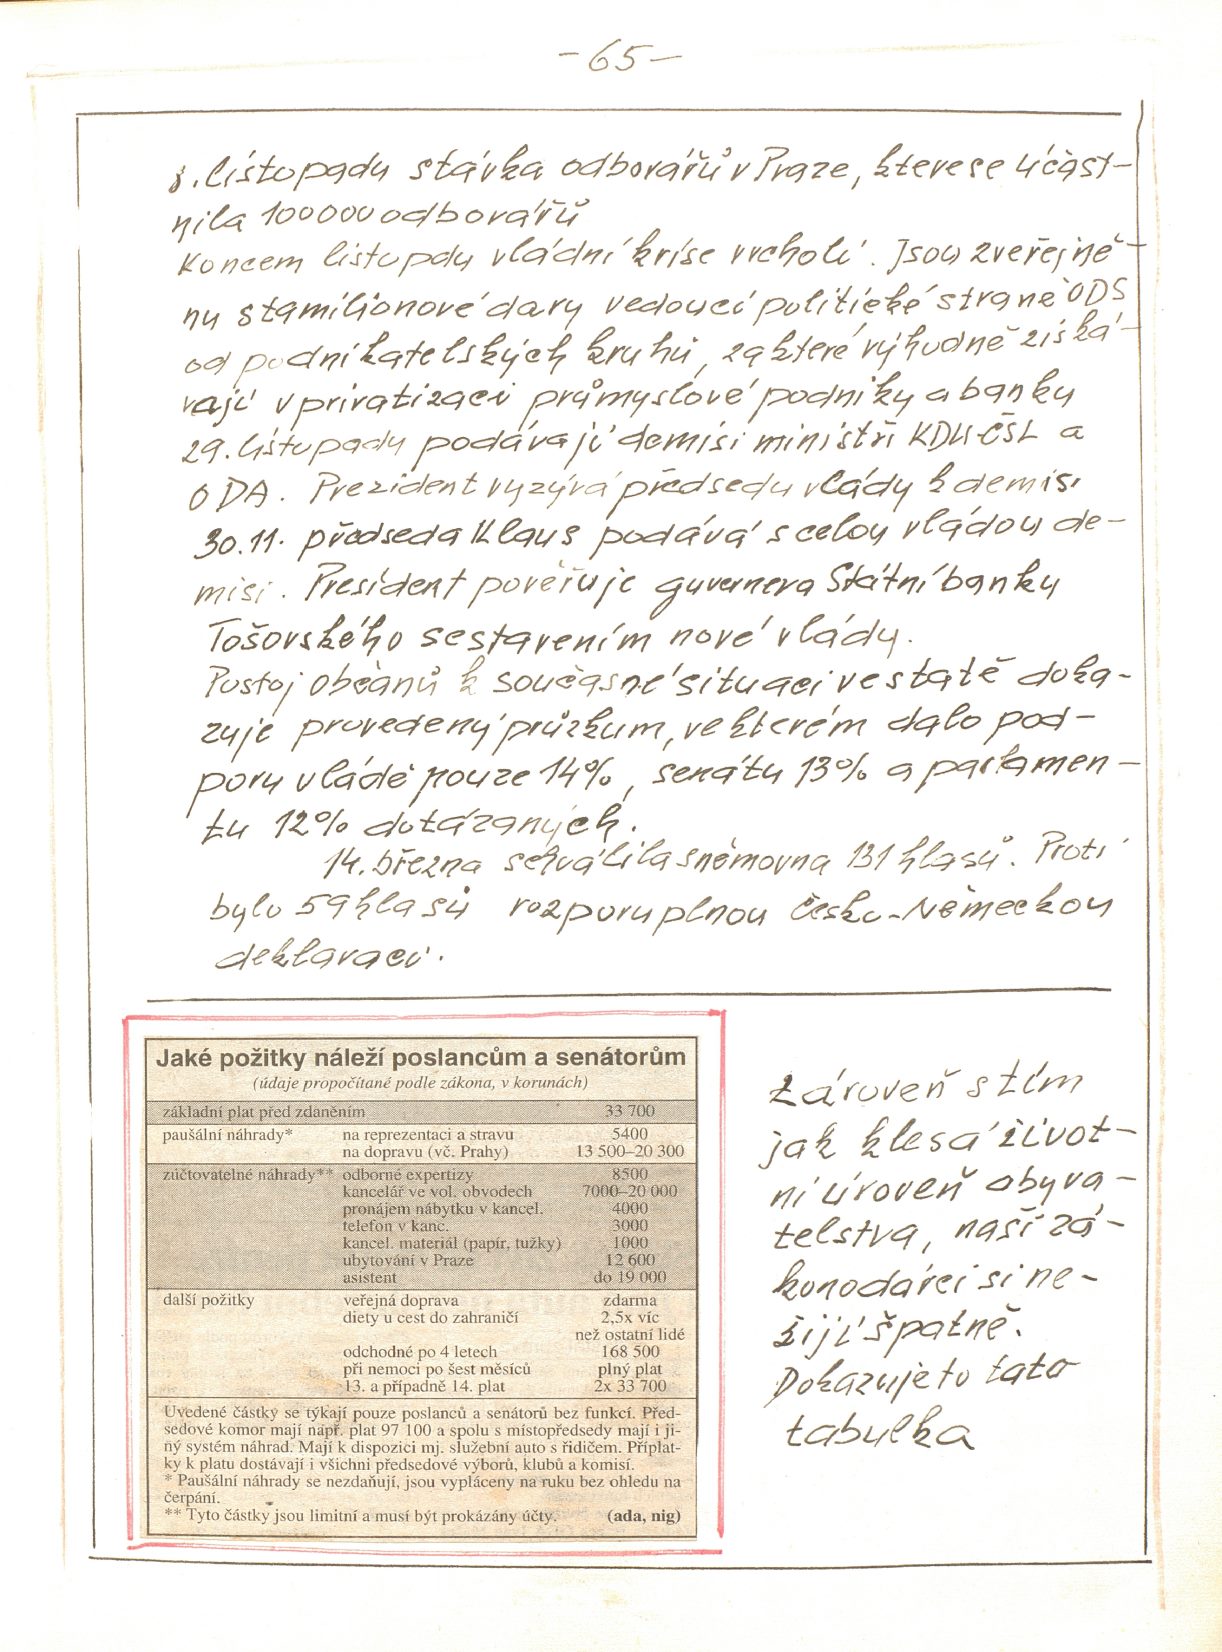 -65-
8. listopadu stávka odborářů v Praze, které se účast-
nila 100000 odborářů
Koncem listopadu vládní krise vrcholí. Jsou zveřejně-
ny stamilionové dary vedoucí politické straně ODS
od podnikatelských kruhů, za které výhodně získá-
vají v privatizaci průmyslové podniky a banky
29. listopadu podávají demisi ministři KDU-ČSL a
ODA. Prezident vyzývá předsedu vlády k demisi
30.11. předseda Klaus podává s celou vládou de-
misi. President pověřuje guvernera Státní banky
Tošovského sestavením nové vlády.
Postoj občanů k současné situaci ve statě doka-
zuje provedený průzkum, ve kterém dalo pod-
poru vládě pouze 14%, senátu 13% a parlamen-
tu 12% dotázaných.
14. března schválila sněmovna 131 hlasů. Proti
bylo 59 hlasů rozporuplnou Česko-Německou
deklaraci.
Jaké požitky náleží poslancům a senátorům
(údaje propočítané podle zákona, v korunách)
základní plat před zdaněním 33 700
paušální náhrady* na reprezentaci a stravu 5400
na dopravu (vč. Prahy) 13 500–20 300
zúčtovatelné náhrady** odborné expertizy 8500
kancelář ve vol. obvodech 7000–20 000
pronájem nábytku v kancel. 4000
telefon v kanc. 3000
kancel. materiál (papír, tužky) 1000
ubytování v Praze 12 600
asistent do 19 000
další požitky veřejná doprava zdarma
diety u cest do zahraničí 2,5x víc
než ostatní lidé
odchodné po 4 letech 168 500
při nemoci po šest měsíců plný plat
13. a případně 14. plat 2x 33 700
Uvedené částky se týkají pouze poslanců a senátorů bez funkcí. Před-
sedové komor mají např. plat 97 100 a spolu s místopředsedy mají i ji-
ný systém náhrad. Mají k dispozici mj. služební auto s řidičem. Příplat-
ky k platu dostávají i všichni předsedové výborů, klubů a komisí.
* Paušální náhrady se nezdaňují, jsou vypláceny na ruku bez ohledu na
čerpání.
** Tyto částky jsou limitní a musí být prokázány účty. (ada, nig)
Zároveň s tím
jak klesá život-
ní úroveň obyva-
telstva, naší zá-
konodárci si ne-
žijí špatně.
Dokazuje to tato
tabulka